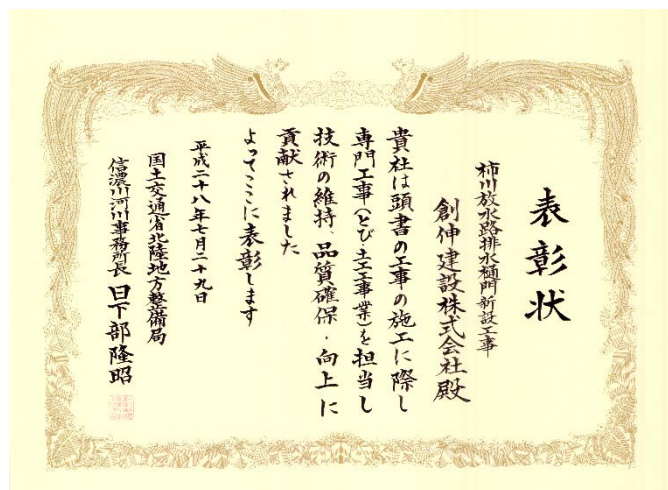 表彰状
柿川放水路排水樋門新設工事
創伸建設株式会社殿
貴社は頭書の工事の施工に際し
専門工事(とび・土工事業)を担当し
技術の維持、品質確保・向上に
貢献されました
よってここに表彰します
平成二十八年七月二十九日
国土交通省北陸地方整備局
信濃川河川事務所長 日下部隆昭